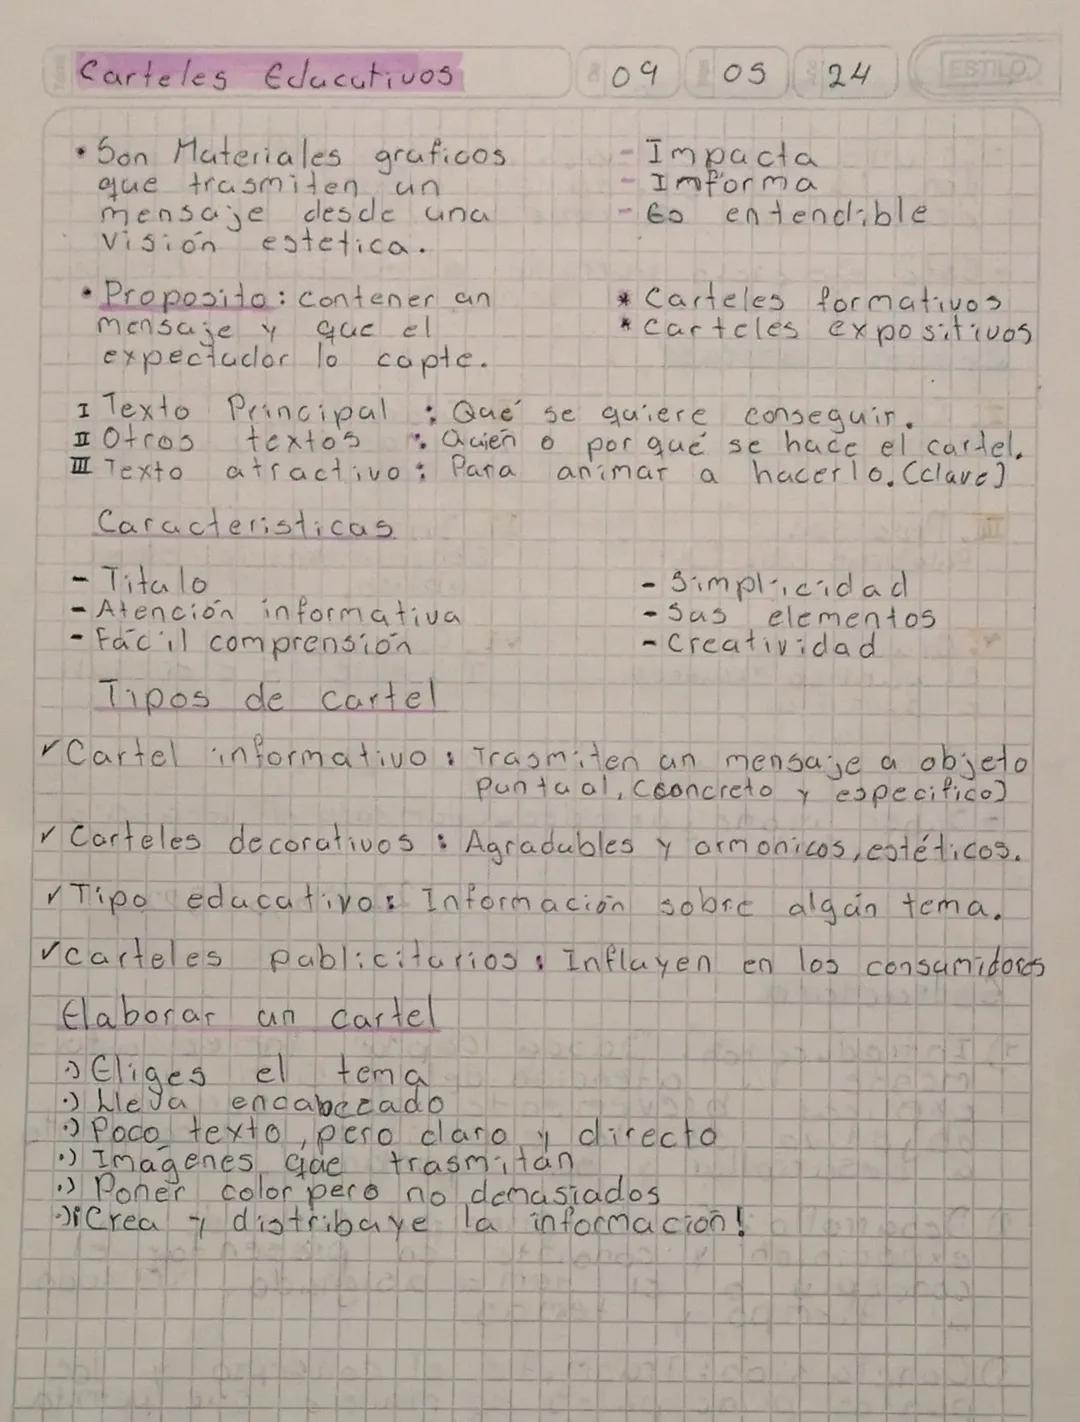 Carteles Educativos 09 05 24 ESTILO
• Son Materiales graficos
que trasmiten un
mensaje desde una
visión estetica.
- Impacta
- Imforma
- Es entendible
• Proposito: contener un
mensaje y que el
expectador lo capte.
* Carteles formativos
* carteles expositivos
I Texto Principal : Qué se quiere conseguir.
II Otros textos : Quien o por qué se hace el cartel.
III Texto atractivo : Para animar a hacerlo. (clave)
Caracteristicas
- Titulo
- Atención informativa
- Fácil comprensión
- Simplicidad
- Sus elementos
- Creatividad
Tipos de cartel
✓ Cartel informativo : Trasmiten un mensaje a objeto
puntual, (concreto y especifico)
✓ Carteles decorativos : Agradables y armonicos, estéticos.
✓ Tipo educativo : Información sobre algún tema.
✓ carteles publicitarios : Influyen en los consumidores
Elaborar un cartel
·) Eliges el tema
·) Lleva encabezado
·) Poco texto, pero claro y directo
·) Imagenes que trasmitan
·) Poner color pero no demasiados
·) ¡Crea y distribuye la información!